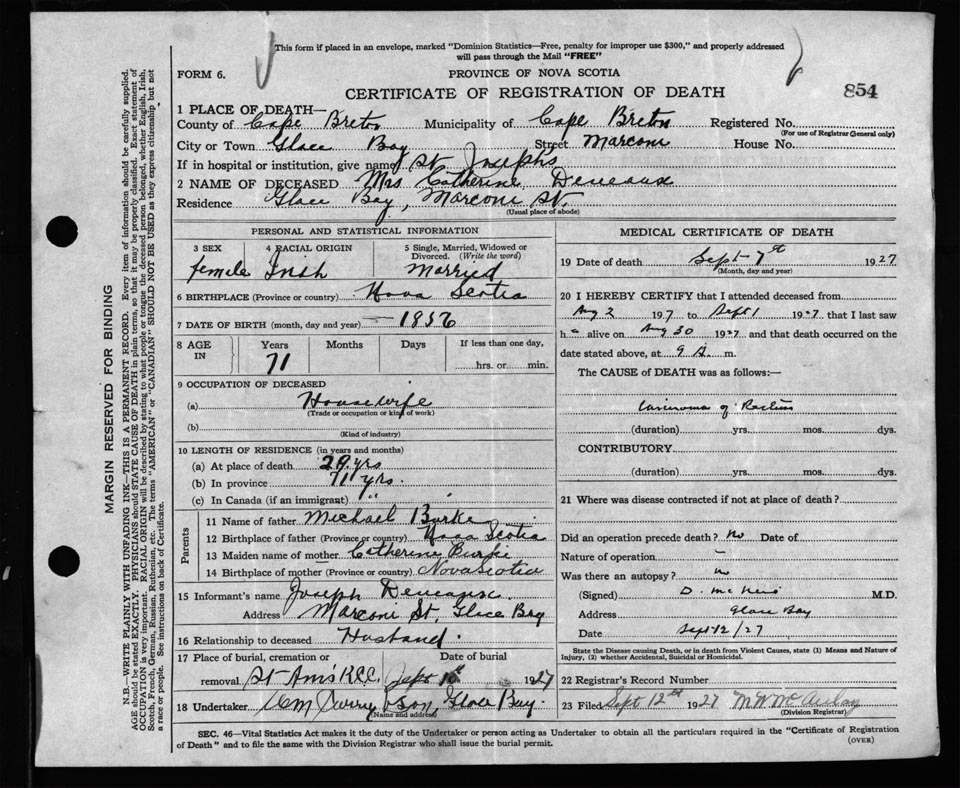 This form if placed in an envelope, marked "Dominion Statistics—Free, penalty for improper use $300," and properly addressed
will pass through the Mail "FREE"
FORM 6.
PROVINCE OF NOVA SCOTIA
CERTIFICATE OF REGISTRATION OF DEATH
854
MARGIN RESERVED FOR BINDING
N.B.—WRITE PLAINLY WITH UNFADING INK—THIS IS A PERMANENT RECORD. Every item of information should be carefully supplied.
AGE should be stated EXACTLY. PHYSICIANS should STATE CAUSE OF DEATH in plain terms, so that it may be properly classified. Exact statement of
OCCUPATION is very important. RACIAL ORIGIN will be described by stating to what people or tongue the deceased person belonged, whether English, Irish,
Scotch, French, German, Russian, Ruthenian, etc. The terms "AMERICAN" or "CANADIAN" SHOULD NOT BE USED as they express citizenship but not
a race or people. See instructions on back of Certificate.
1 PLACE OF DEATH—
County of Cape Breton Municipality of Cape Breton Registered No.
(For use of Registrar General only)
City or Town Glace Bay Street Marconi House No.
If in hospital or institution, give name St Josephs
2 NAME OF DECEASED Mrs Catherine Deveaux
Residence Glace Bay, Marconi St.
(Usual place of abode)
PERSONAL AND STATISTICAL INFORMATION
3 SEX 4 RACIAL ORIGIN 5 Single, Married, Widowed or
Divorced. (Write the word)
female Irish Married
6 BIRTHPLACE (Province or country) Nova Scotia
7 DATE OF BIRTH (month, day and year) — 1856
8 AGE IN Years Months Days If less than one day,
71 hrs. or min.
9 OCCUPATION OF DECEASED
(a) Housewife
(Trade or occupation or kind of work)
(b)
(Kind of industry)
10 LENGTH OF RESIDENCE (in years and months)
(a) At place of death 29 yrs
(b) In province 71 yrs.
(c) In Canada (if an immigrant) "
Parents
11 Name of father Michael Burke
12 Birthplace of father (Province or country) Nova Scotia
13 Maiden name of mother Catherine Burke
14 Birthplace of mother (Province or country) Nova Scotia
15 Informant's name Joseph Deveaux
Address Marconi St, Glace Bay
16 Relationship to deceased Husband.
17 Place of burial, cremation or Date of burial
removal St Ann's Sept 1927
18 Undertaker & Son, Glace Bay.
(Name and address)
MEDICAL CERTIFICATE OF DEATH
19 Date of death Sept 1st 1927
(Month, day and year)
20 I HEREBY CERTIFY that I attended deceased from
Aug 2 1927 to Sept 1 1927 that I last saw
h alive on Aug 30 1927 and that death occurred on the
date stated above, at 9 A. m.
The CAUSE of DEATH was as follows:—
Carcinoma of Rectum
(duration) yrs. mos. dys.
CONTRIBUTORY
(duration) yrs. mos. dys.
21 Where was disease contracted if not at place of death?
Did an operation precede death? No Date of
Nature of operation —
Was there an autopsy? no
(Signed) D. M.D.
Address Glace Bay
Date Sept 12/27
State the Disease causing Death, or in death from Violent Causes, state (1) Means and Nature of
Injury, (2) whether Accidental, Suicidal or Homicidal.
22 Registrar's Record Number
23 Filed Sept 12th 1927 McAulay
(Division Registrar)
SEC. 46—Vital Statistics Act makes it the duty of the Undertaker or person acting as Undertaker to obtain all the particulars required in the "Certificate of Registration
of Death" and to file the same with the Division Registrar who shall issue the burial permit.
(OVER)